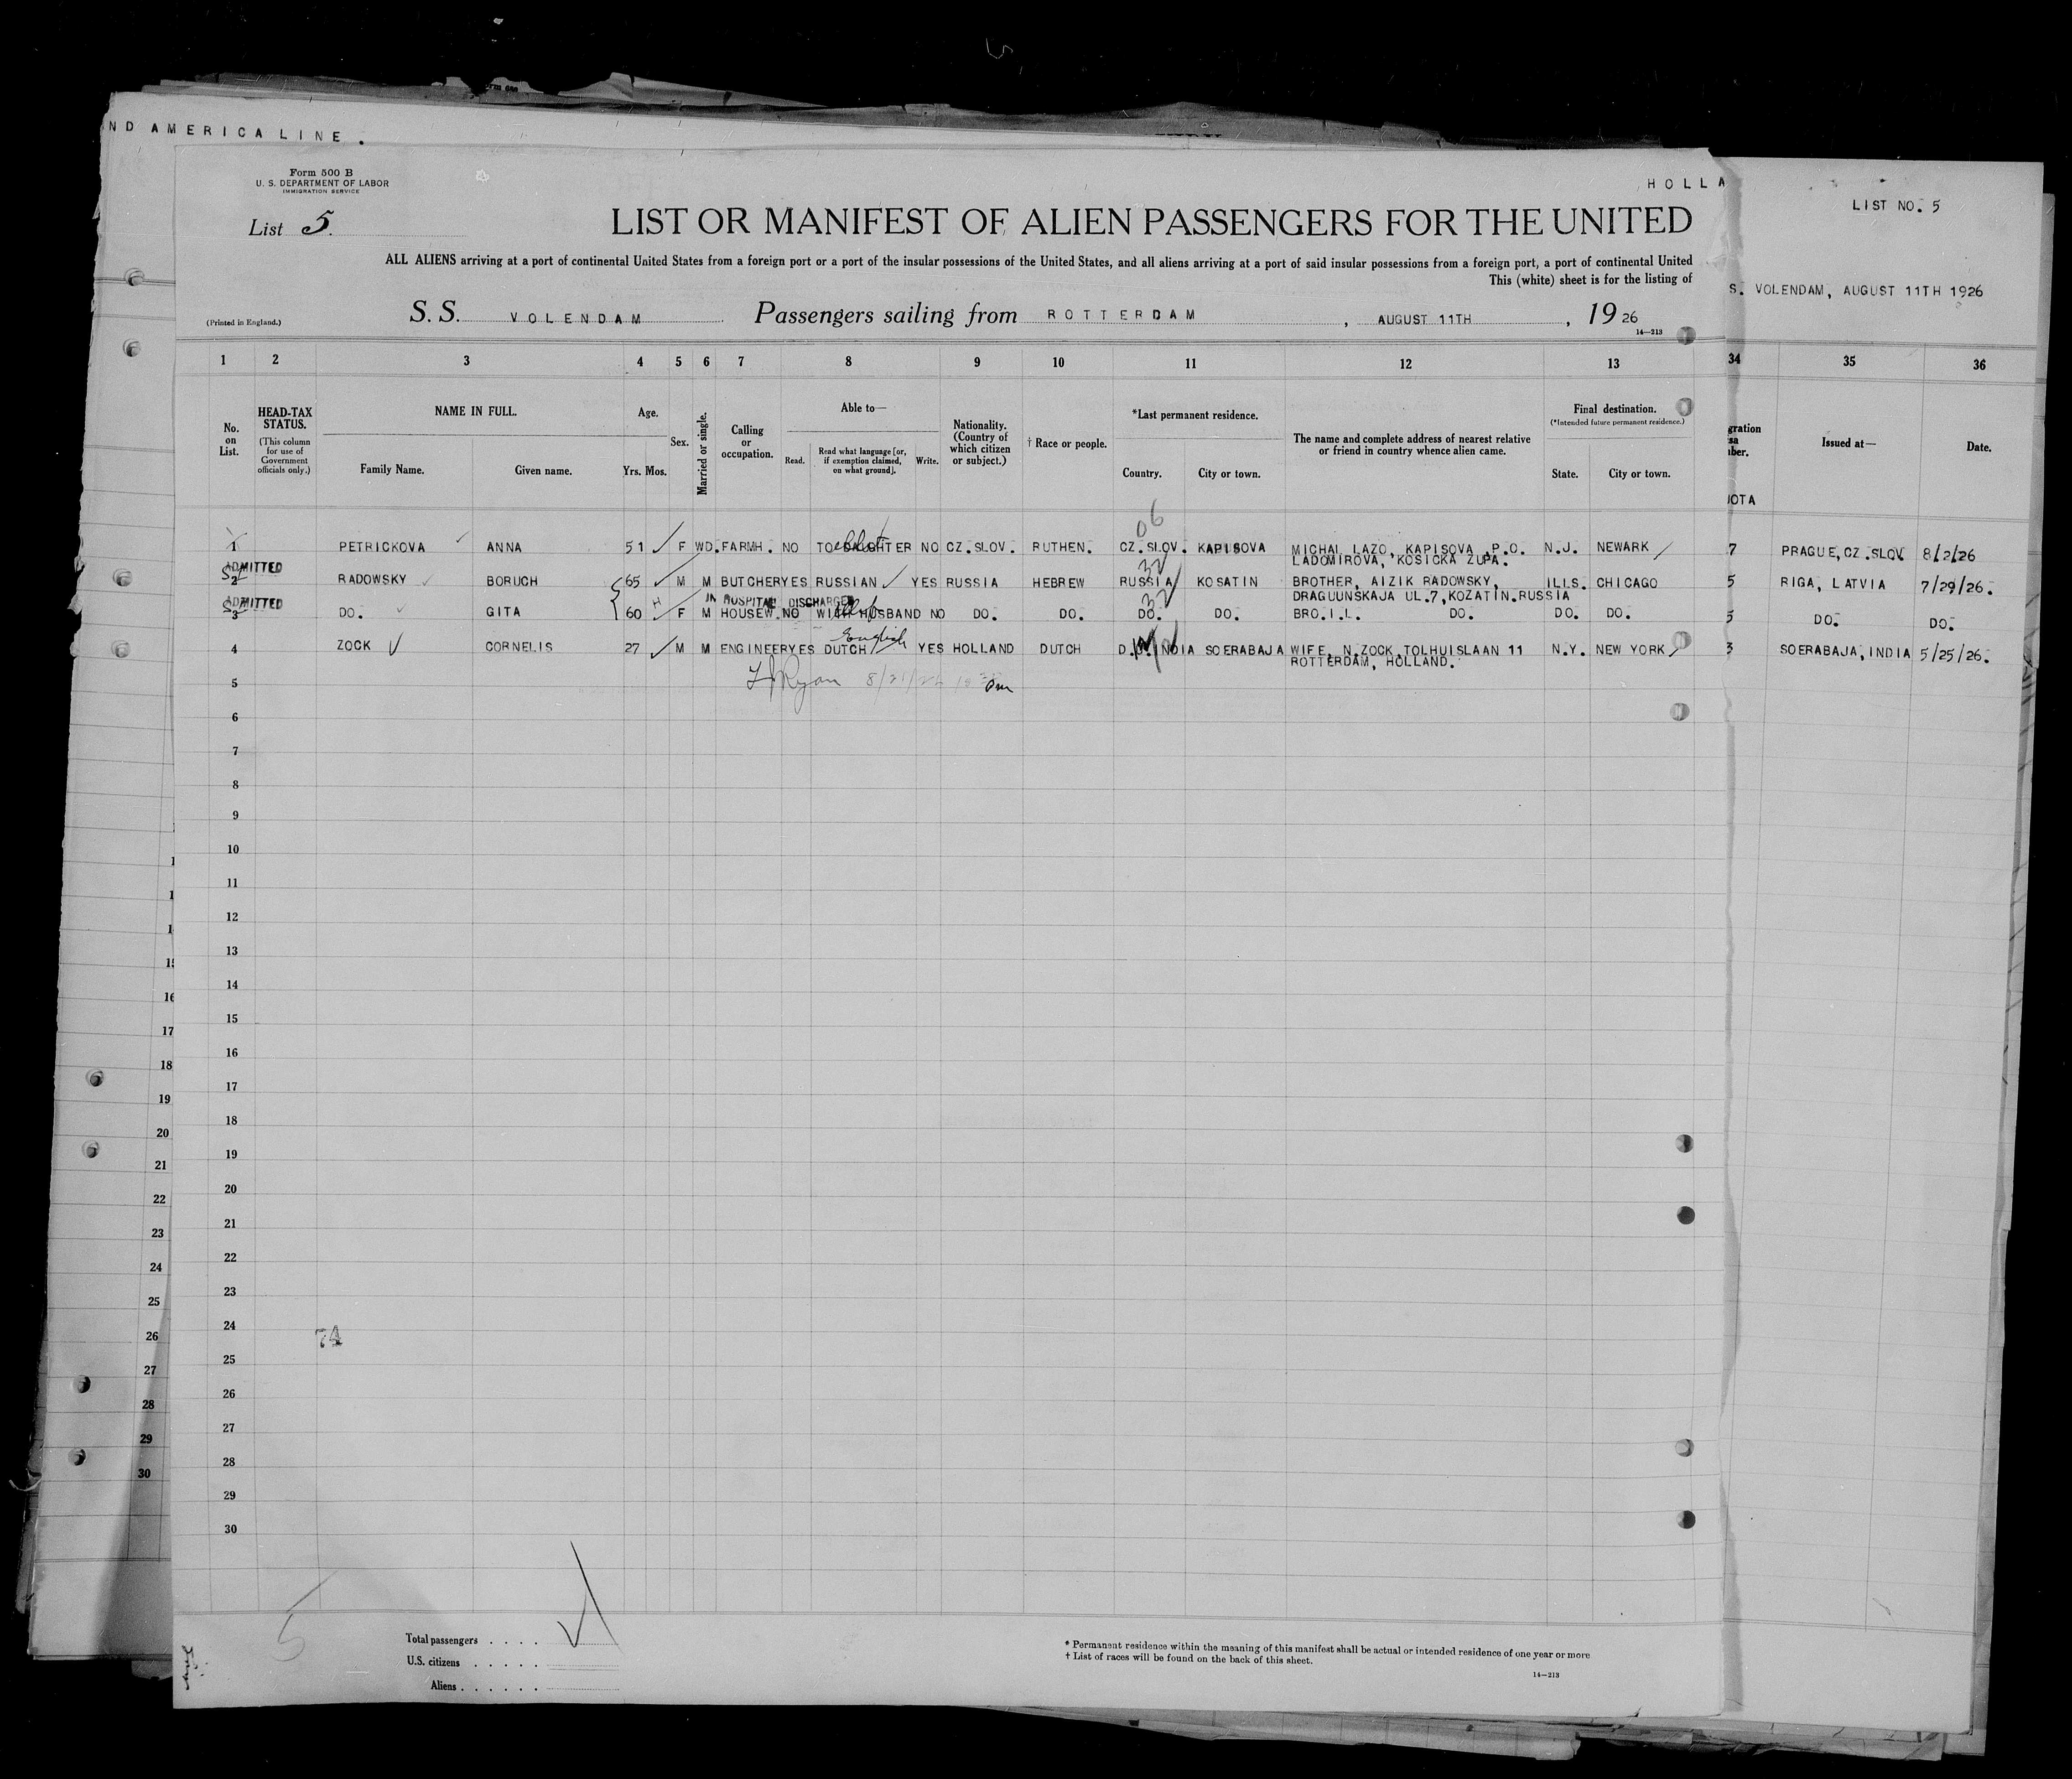 ND AMERICA LINE.
Form 500 B
U. S. DEPARTMENT OF LABOR
IMMIGRATION SERVICE
HOLLA
LIST NO. 5
List 5.
LIST OR MANIFEST OF ALIEN PASSENGERS FOR THE UNITED
ALL ALIENS arriving at a port of continental United States from a foreign port or a port of the insular possessions of the United States, and all aliens arriving at a port of said insular possessions from a foreign port, a port of continental United
This (white) sheet is for the listing of
S. VOLENDAM, AUGUST 11TH 1926
(Printed in England.) S. S. VOLENDAM Passengers sailing from ROTTERDAM, AUGUST 11TH, 1926
14—213
1 2 3 4 5 6 7 8 9 10 11 12 13 34 35 36
No. on List.
HEAD-TAX STATUS.
(This column for use of Government officials only.)
NAME IN FULL.
Family Name. Given name.
Age.
Yrs. Mos.
Sex.
Married or single.
Calling or occupation.
Able to—
Read. Read what language [or, if exemption claimed, on what ground]. Write.
Nationality. (Country of which citizen or subject.)
† Race or people.
*Last permanent residence.
Country. City or town.
The name and complete address of nearest relative or friend in country whence alien came.
Final destination.
(*Intended future permanent residence.)
State. City or town.
Issued at—
Date.
06
1 PETRICKOVA ANNA 51 F WD. FARMH. NO TO DAUGHTER NO CZ.SLOV. RUTHEN. CZ.SLOV. KAPISOVA MICHAL LAZO, KAPISOVA, P.O. N.J. NEWARK 7 PRAGUE, CZ.SLOV 8/2/26
LADOMIROVA, KOSICKA ZUPA.
ADMITTED
32
2 RADOWSKY BORUCH 65 M M BUTCHER YES RUSSIAN YES RUSSIA HEBREW RUSSIA KOSATIN BROTHER, AIZIK RADOWSKY, ILLS. CHICAGO 5 RIGA, LATVIA 7/29/26.
DRAGUUNSKAJA UL.7, KOZATIN.RUSSIA
ADMITTED
IN HOSPITAL DISCHARGED
32
3 DO. GITA 60 F M HOUSEW. NO WITH HUSBAND NO DO. DO. DO. DO. BRO.I.L. DO. DO. DO. 5 DO. DO.
English
4 ZOCK CORNELIS 27 M M ENGINEER YES DUTCH YES HOLLAND DUTCH INDIA SOERABAJA WIFE, N.ZOCK TOLHUISLAAN 11 N.Y. NEW YORK 3 SOERABAJA, INDIA 5/25/26.
ROTTERDAM, HOLLAND.
5 Ryan
6
7
8
9
10
11
12
13
14
15
16
17
18
19
20
21
22
23
24
74
25
26
27
28
29
30
15
16
17
18
19
20
21
22
23
24
25
26
27
28
29
30
5
Total passengers . . . .
U.S. citizens . . . . .
Aliens . . . . . .
* Permanent residence within the meaning of this manifest shall be actual or intended residence of one year or more
† List of races will be found on the back of this sheet.
14—213